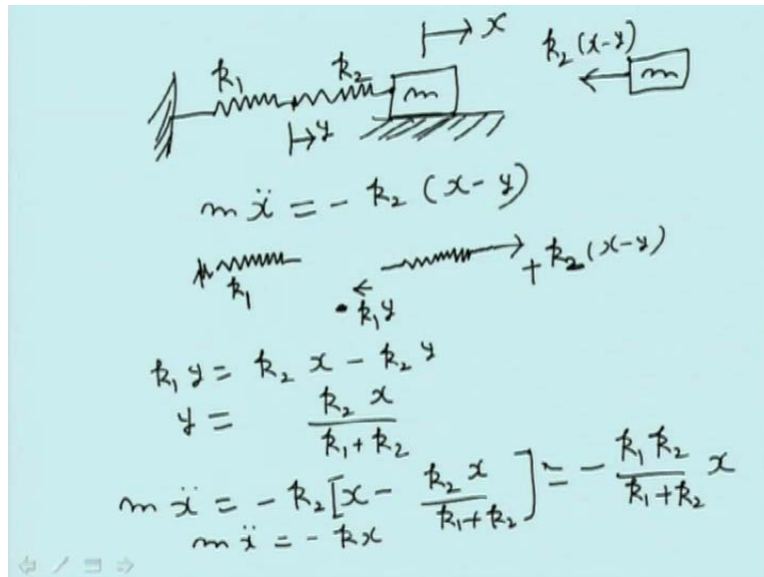 x
k₁ k₂ m
y
k₂(x-y)
m
mẍ = - k₂ (x-y)
k₁
+k₂(x-y)
k₁y
k₁y = k₂ x - k₂ y
y = k₂ x / k₁+k₂
mẍ = - k₂[x - k₂ x / k₁+k₂] = - k₁ k₂ / k₁+k₂ x
mẍ = - kx